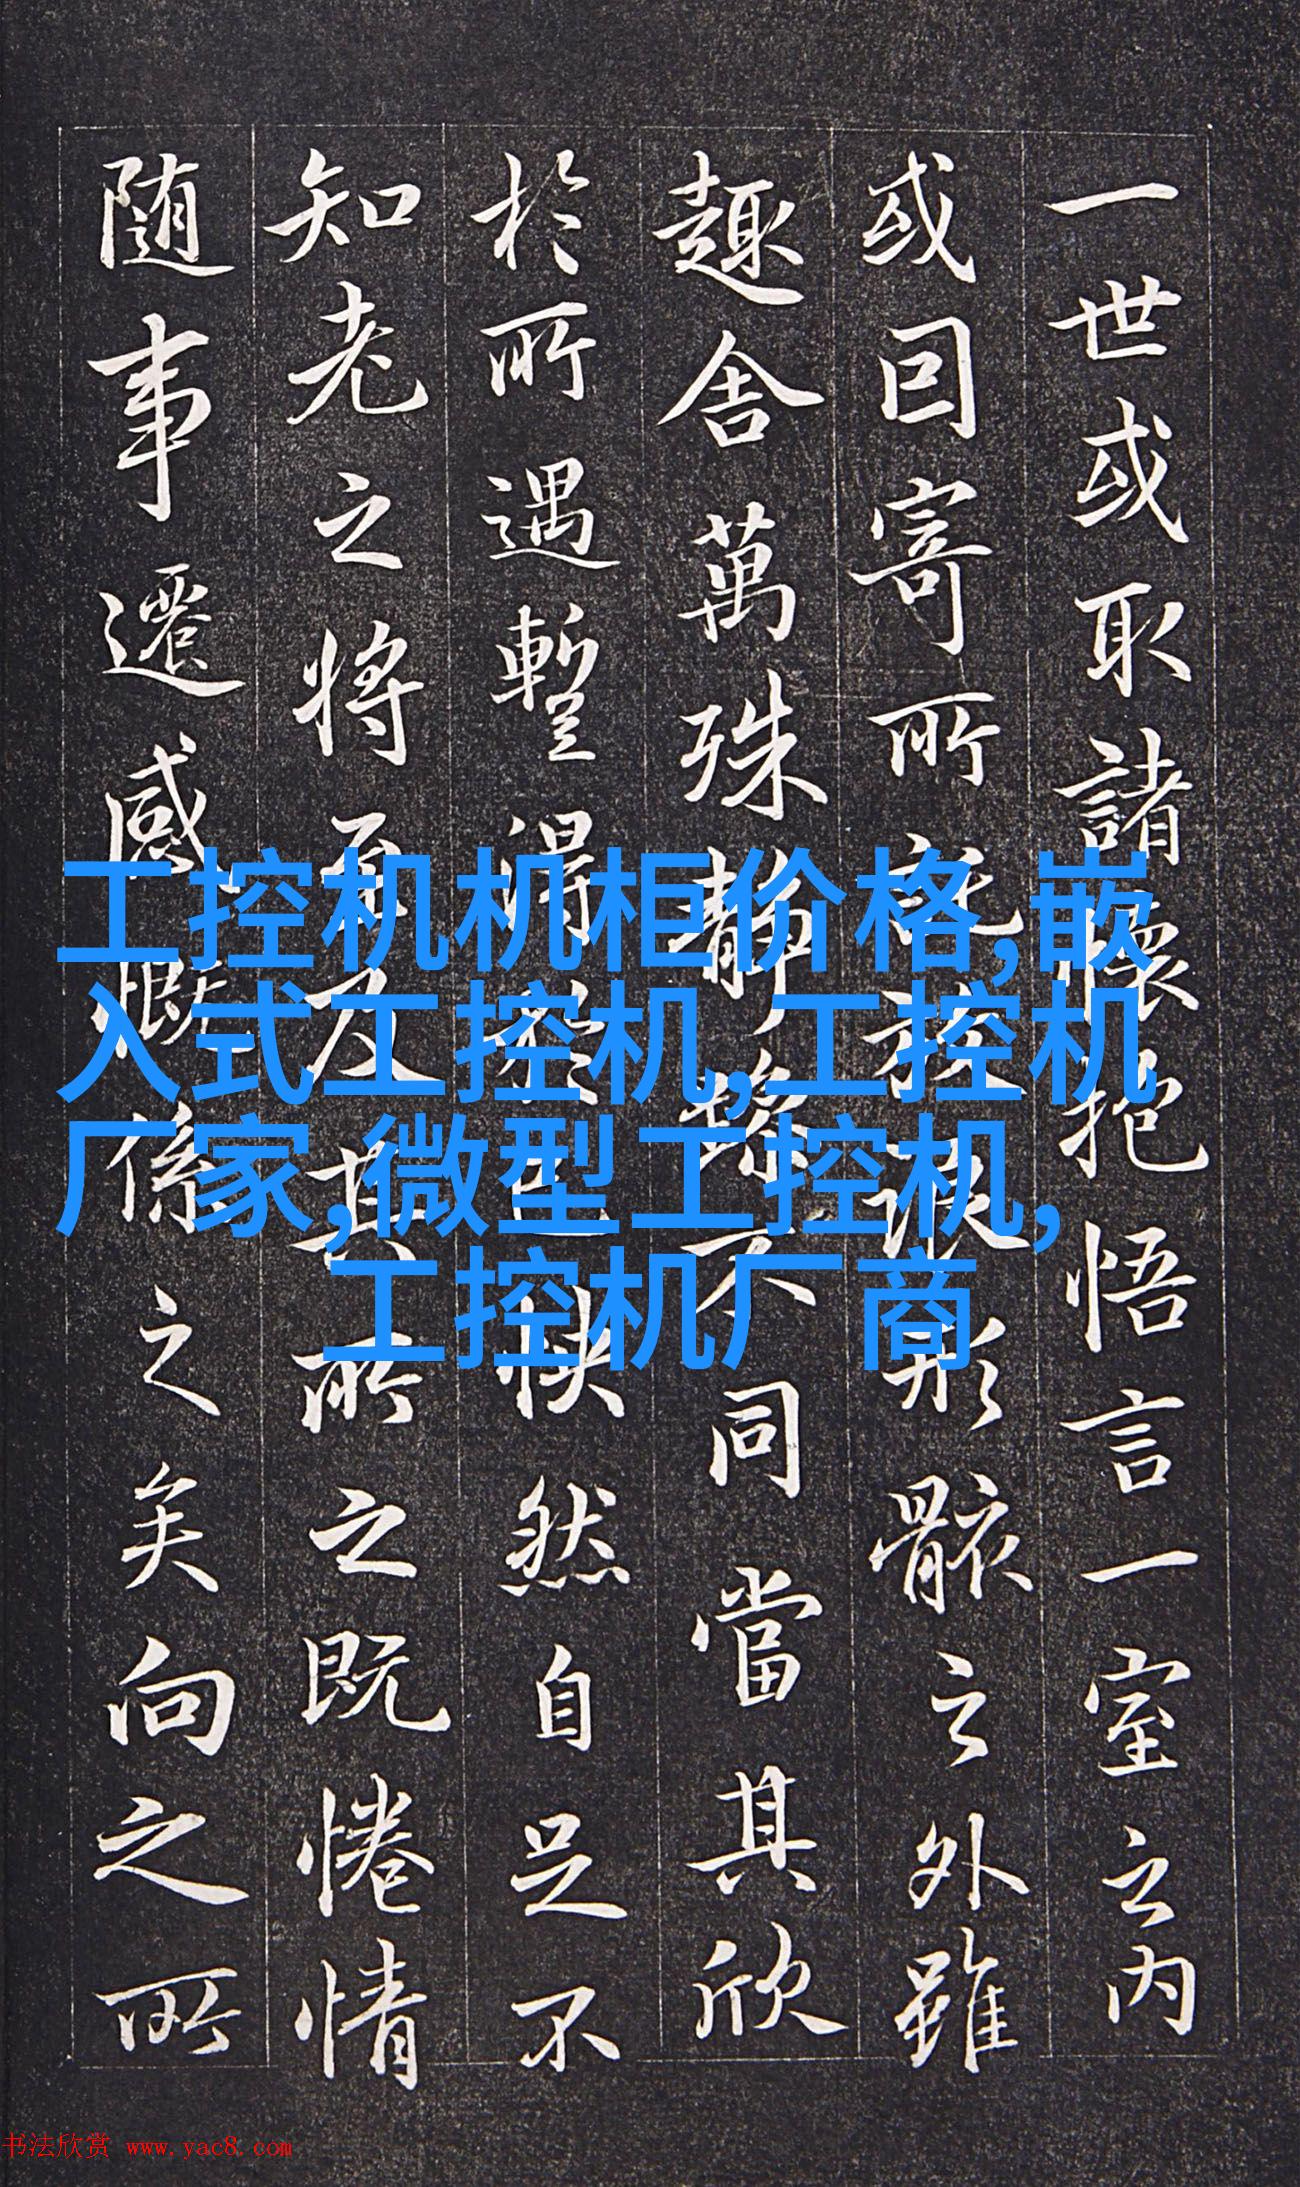 一世或取諸懷抱悟言一室之内
或因寄所託放浪形骸之外雖
趣舍萬殊静躁不同當其欣
於所遇暫得於己快然自足不
知老之將至及其所之既惓情
随事遷感慨係之矣向之所
工控机机柜价格,嵌
入式工控机,工控机
厂家,微型工控机,
工控机厂商
书法欣赏 www.yac8.com